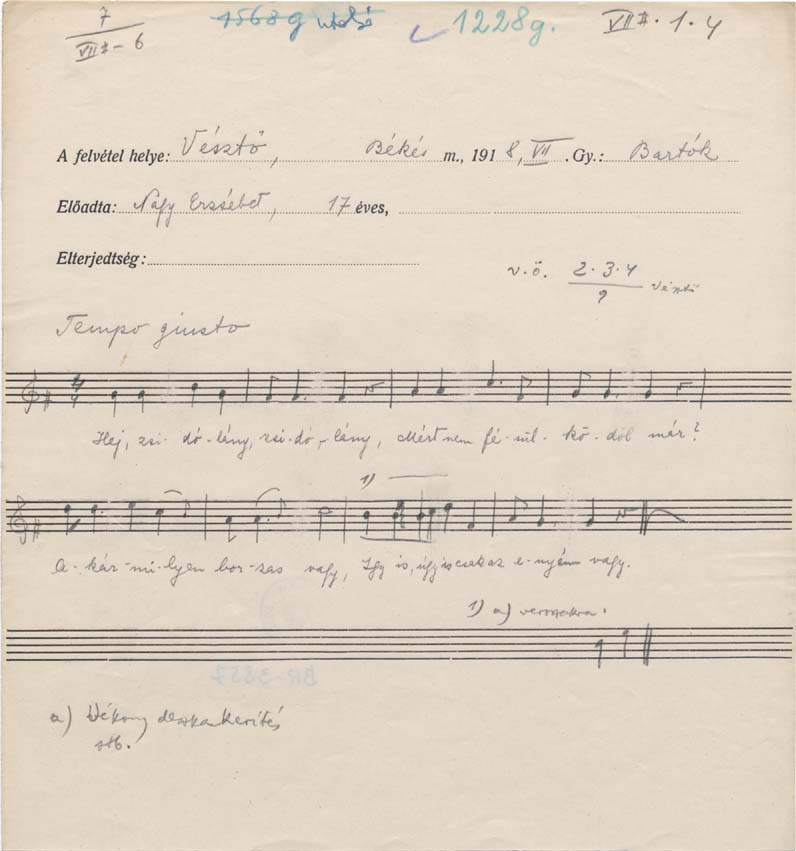 7
VII#-6
1568g utolsó
1228g.
VII#.1.4
A felvétel helye: Vésztő, Békés m., 1918, VII. Gy.: Bartók
Előadta: Nagy Erzsébet, 17 éves,
Elterjedtség:
v.ö. 2.3.4
9 Vésztő
Tempo giusto
4
4
Hej, zsi-dó-lány, zsi-dó-lány, Mért nem fé-sül-kö-döl már?
1)
A-kár-mi-lyen bor-zas vagy, Igy is, úgy is csak az e-nyém vagy.
1) a) versszakra:
BR-3857
a) Vékony deszkakerítés
stb.